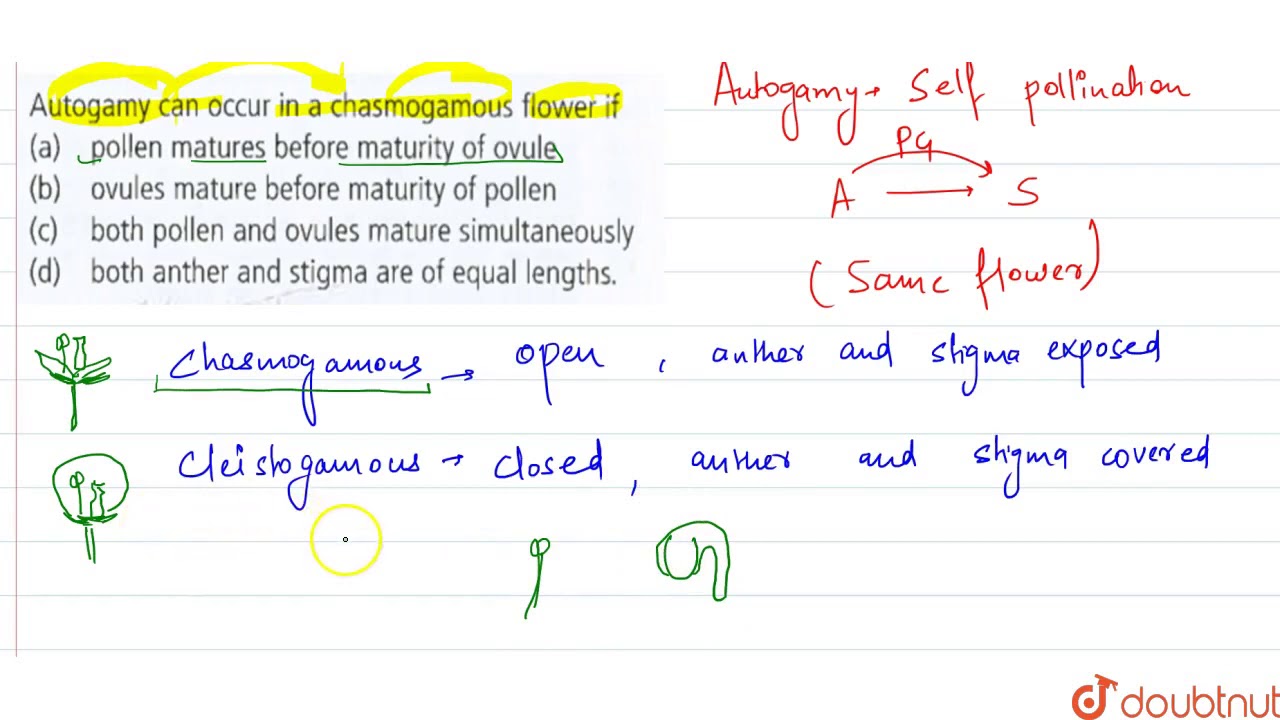 Autogamy can occur in a chasmogamous flower if
(a) pollen matures before maturity of ovule
(b) ovules mature before maturity of pollen
(c) both pollen and ovules mature simultaneously
(d) both anther and stigma are of equal lengths.
Autogamy → Self pollination
PG
A → S
(Same flower)
Chasmogamous → open, anther and stigma exposed
Cleistogamous → closed, anther and stigma covered
doubtnut